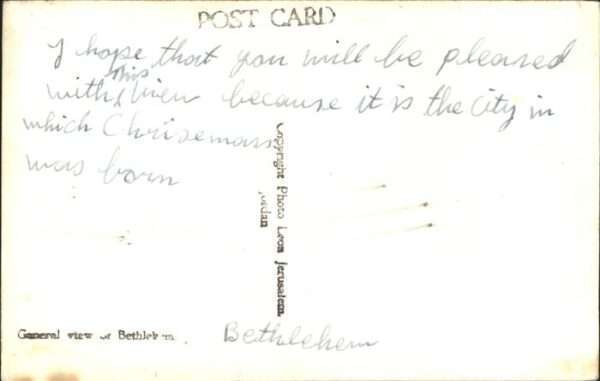 POST CARD
I hope that you will be pleased
with this view because it is the City in
which Chrisemass
was born
Copyright Photo Leon Jerusalem.
Jordan
General view of Bethlehem
Bethlehem